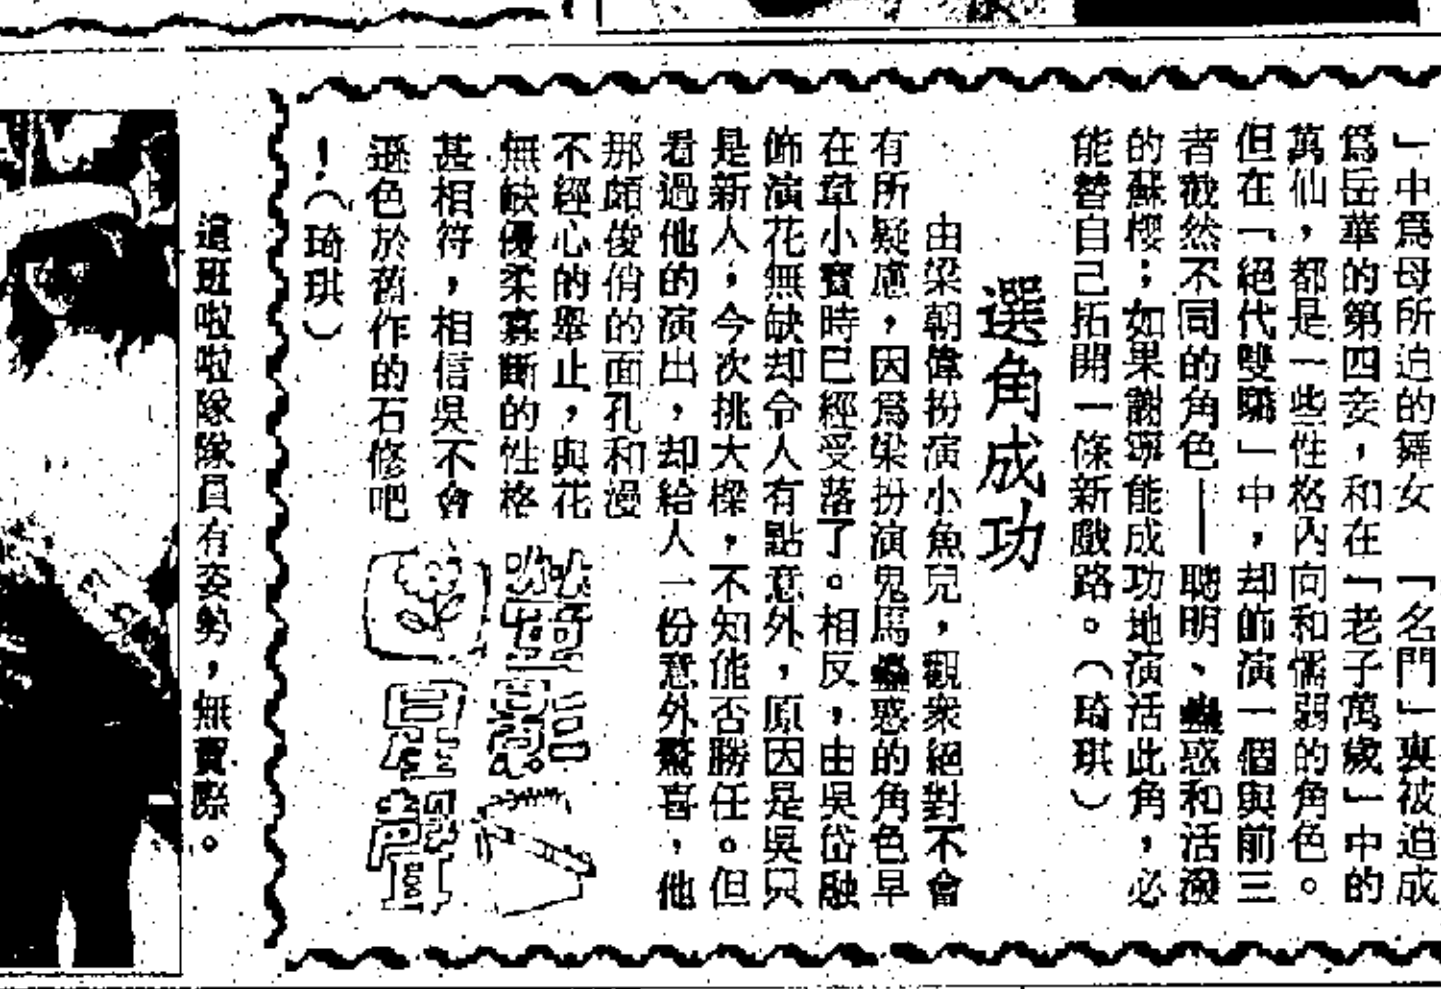 」中爲母所迫的舞女 「名門」裏被迫成
爲岳華的第四妾，和在「老子萬歲」中的
萬仙，都是一些性格內向和懦弱的角色。
但在「絕代雙驕」中，却飾演一個與前三
者截然不同的角色——聰明、蠱惑和活潑
的蘇櫻；如果謝寧能成功地演活此角，必
能替自己拓開一條新戲路。（琦琪）
選角成功
由梁朝偉扮演小魚兒，觀衆絕對不會
有所疑慮，因爲梁扮演鬼馬蠱惑的角色早
在韋小寶時巳經受落了。相反，由吳岱融
飾演花無缺却令人有點意外，原因是吳只
是新人，今次挑大樑，不知能否勝任。但
看過他的演出，却給人一份意外驚喜，他
那頗俊俏的面孔和漫
不經心的舉止，與花
無缺優柔寡斷的性格
甚相符，相信吳不會
遜色於舊作的石修吧
！（琦琪）
影
星
這班啦啦隊隊員有姿勢，無實際。